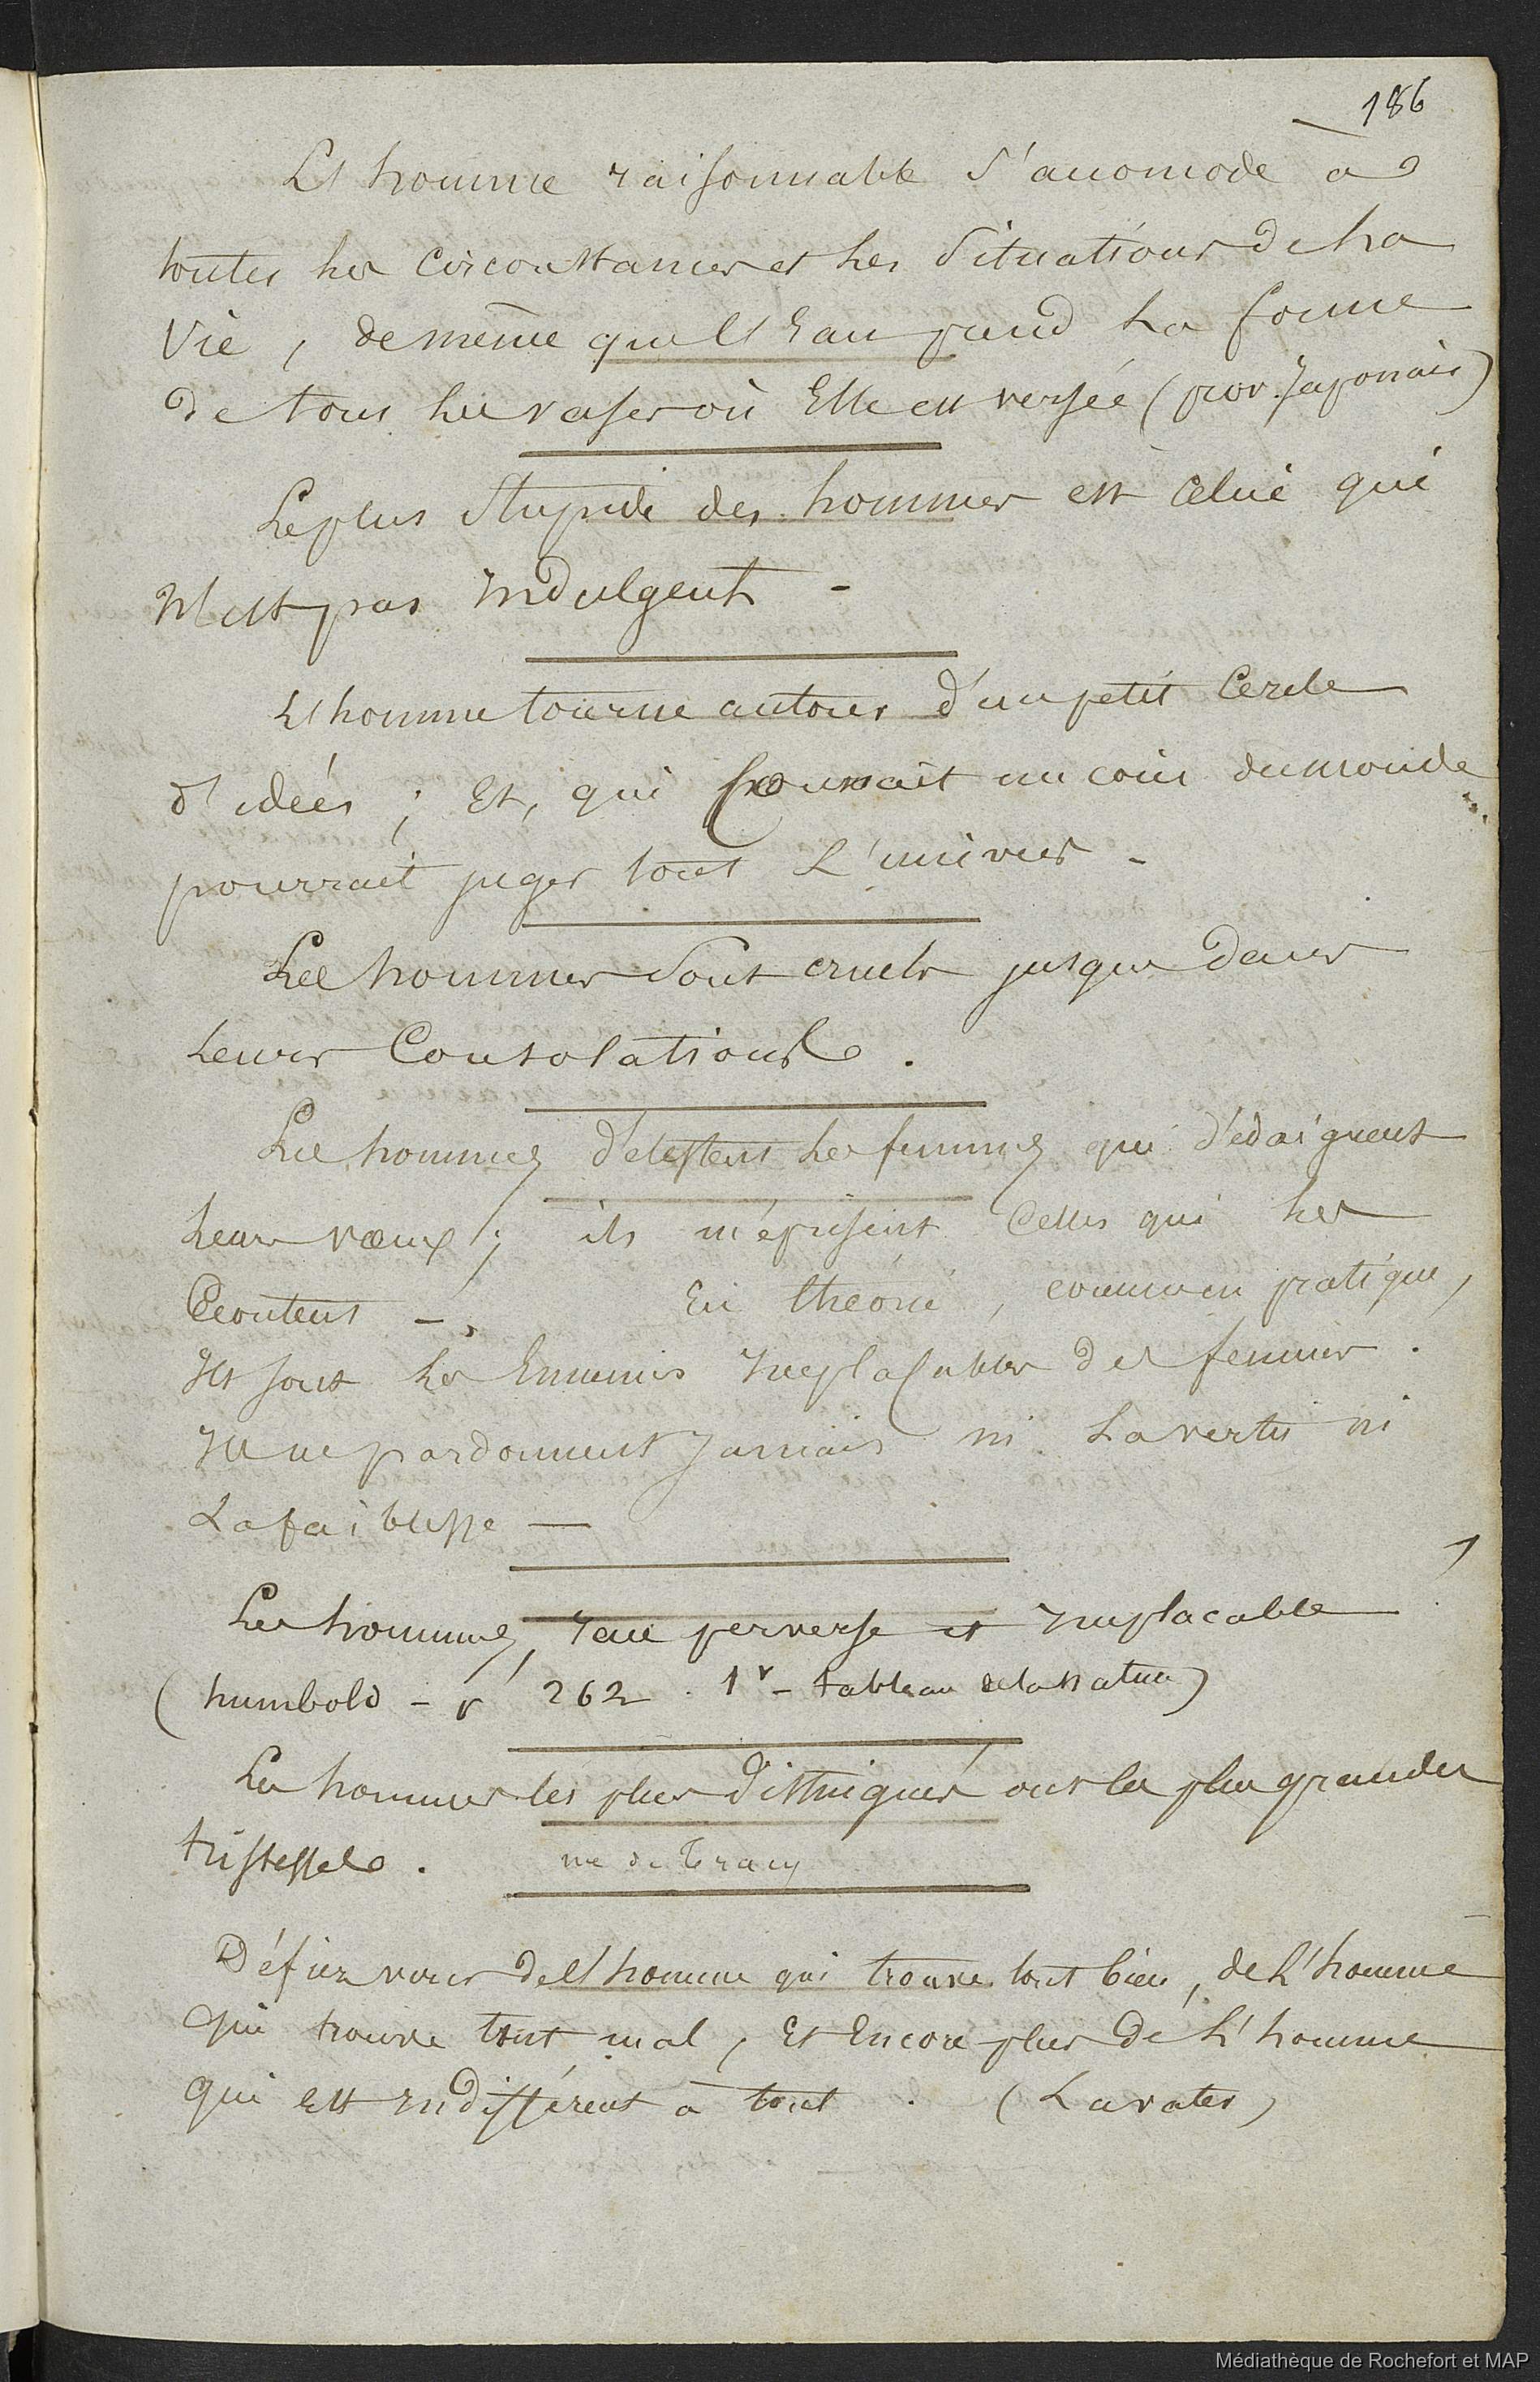 186
L'homme raisonnable s'accomode à
toutes les circonstances et les situations de la
vie, de même que l'Eau prend la forme
de tous les vases où Elle est versée (prov. Japonais)
Le plus stupide des hommes est celui qui
N'est pas Indulgent -
L'homme tourne autour d'un petit Cercle
d'idées ; Et, qui connait un coin du monde
pourrait juger tout L'univers -
Les hommes sont cruels jusque dans
leurs Consolations .
Les hommes détestent les femmes qui dédaignent
leurs vœux ; ils méprisent Celles qui les
Ecoutent - En théorie, comme en pratique,
Ils sont les Ennemis Implacables des femmes .
Ils ne pardonnent Jamais ni La vertu ni
La faiblesse —
Les hommes, race perverse et Implacable
(humbold - 262 . 1r - tableau de la nature)
Les hommes les plus distingués ont les plus grandes
tristesses . me de Tracy
Défiez vous de l'homme qui trouve tout bien, de L'homme
qui trouve tout mal, Et Encore plus de L'homme
qui Est Indifférent à tout . (Lavater)
Médiathèque de Rochefort et MAP